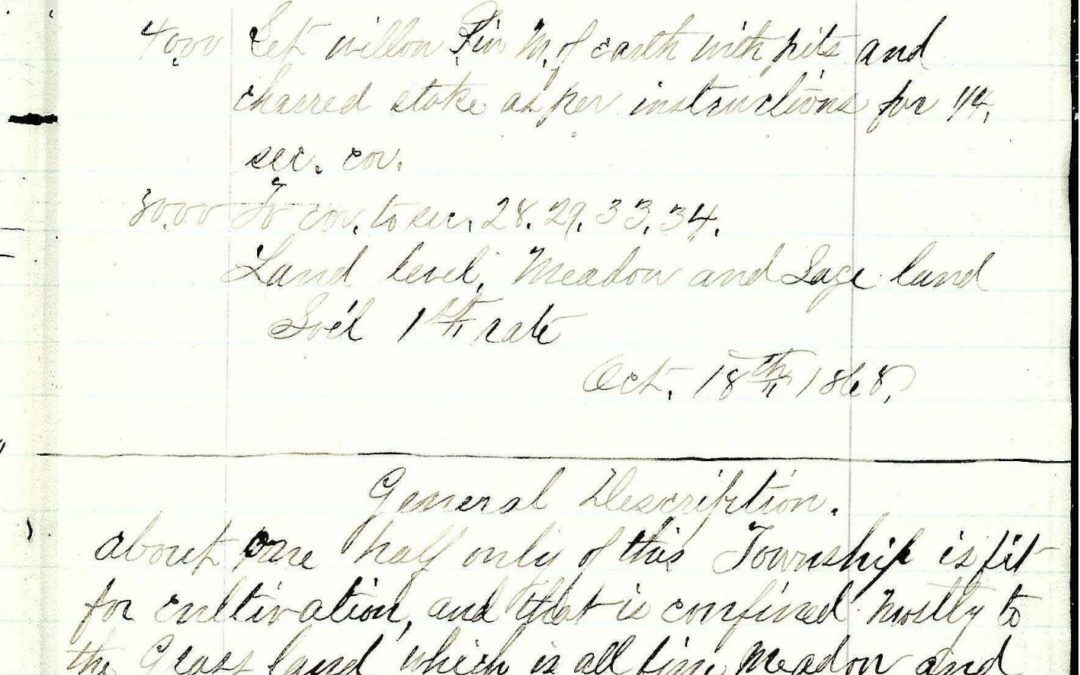 40.00 Set willow Pin M. of earth with pits and
charred stake as per instructions for 1/4.
sec. cor.
80.00 To cor. to sec. 28. 29. 33. 34.
Land level, Meadow and Sage land
Soil 1st rate
Oct. 18th 1868.
General Description.
about one half only of this Township is fit
for cultivation, and that is confined mostly to
the Grass land which is all fine Meadow and